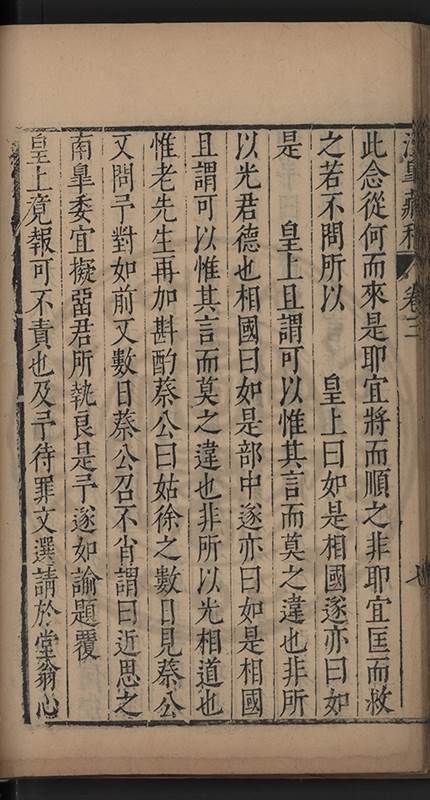 涇皐藏稿 卷三 七
此念從何而來是耶宜將而順之非耶宜匡而救
之若不問所以　皇上曰如是相國遂亦曰如
是　皇上且謂可以惟其言而莫之違也非所
以光君德也相國曰如是部中遂亦曰如是相國
且謂可以惟其言而莫之違也非所以光相道也
惟老先生再加斟酌蔡公曰姑徐之數日見蔡公
又問予對如前又數日蔡公召不肖謂曰近思之
南皐委宜擬畱君所執良是予遂如諭題覆
皇上竟報可不責也及予待罪文選請於堂翁心